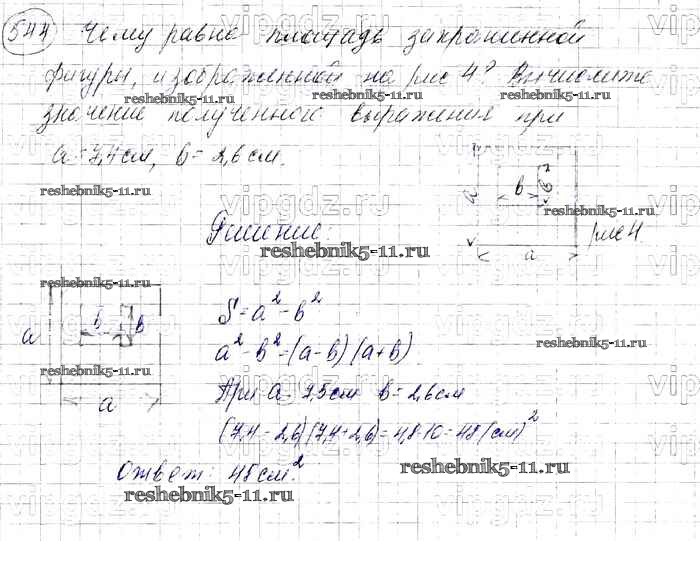 544 Чему равна площадь закрашенной
фигуры, изображенной на рис 4? Вычислите
значение полученного выражения при
a = 7,4 см, b = 2,6 см.
a
b
b
a
рис 4
Решение:
a
b
b
a
S = a² - b²
a² - b² = (a - b)(a + b)
При a - 7,5 см b = 2,6 см
(7,4 - 2,6)(7,4 + 2,6) = 4,8·10 = 48 (см)²
Ответ: 48 см².
reshebnik5-11.ru
reshebnik5-11.ru
reshebnik5-11.ru
reshebnik5-11.ru
reshebnik5-11.ru
reshebnik5-11.ru
reshebnik5-11.ru
reshebnik5-11.ru
reshebnik5-11.ru
reshebnik5-11.ru
reshebnik5-11.ru
vipgdz.ru
vipgdz.ru
vipgdz.ru
vipgdz.ru
vipgdz.ru